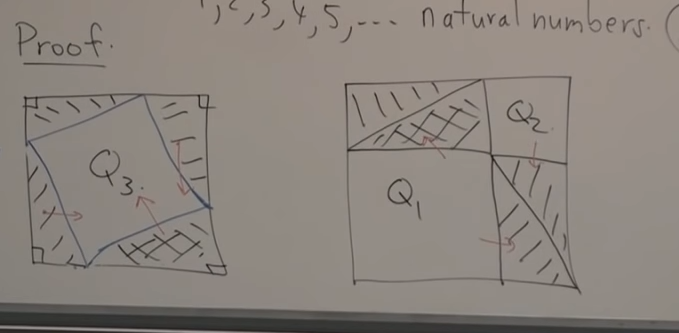 1, 2, 3, 4, 5, ... natural numbers. (
Proof.
Q3.
Q2.
Q1